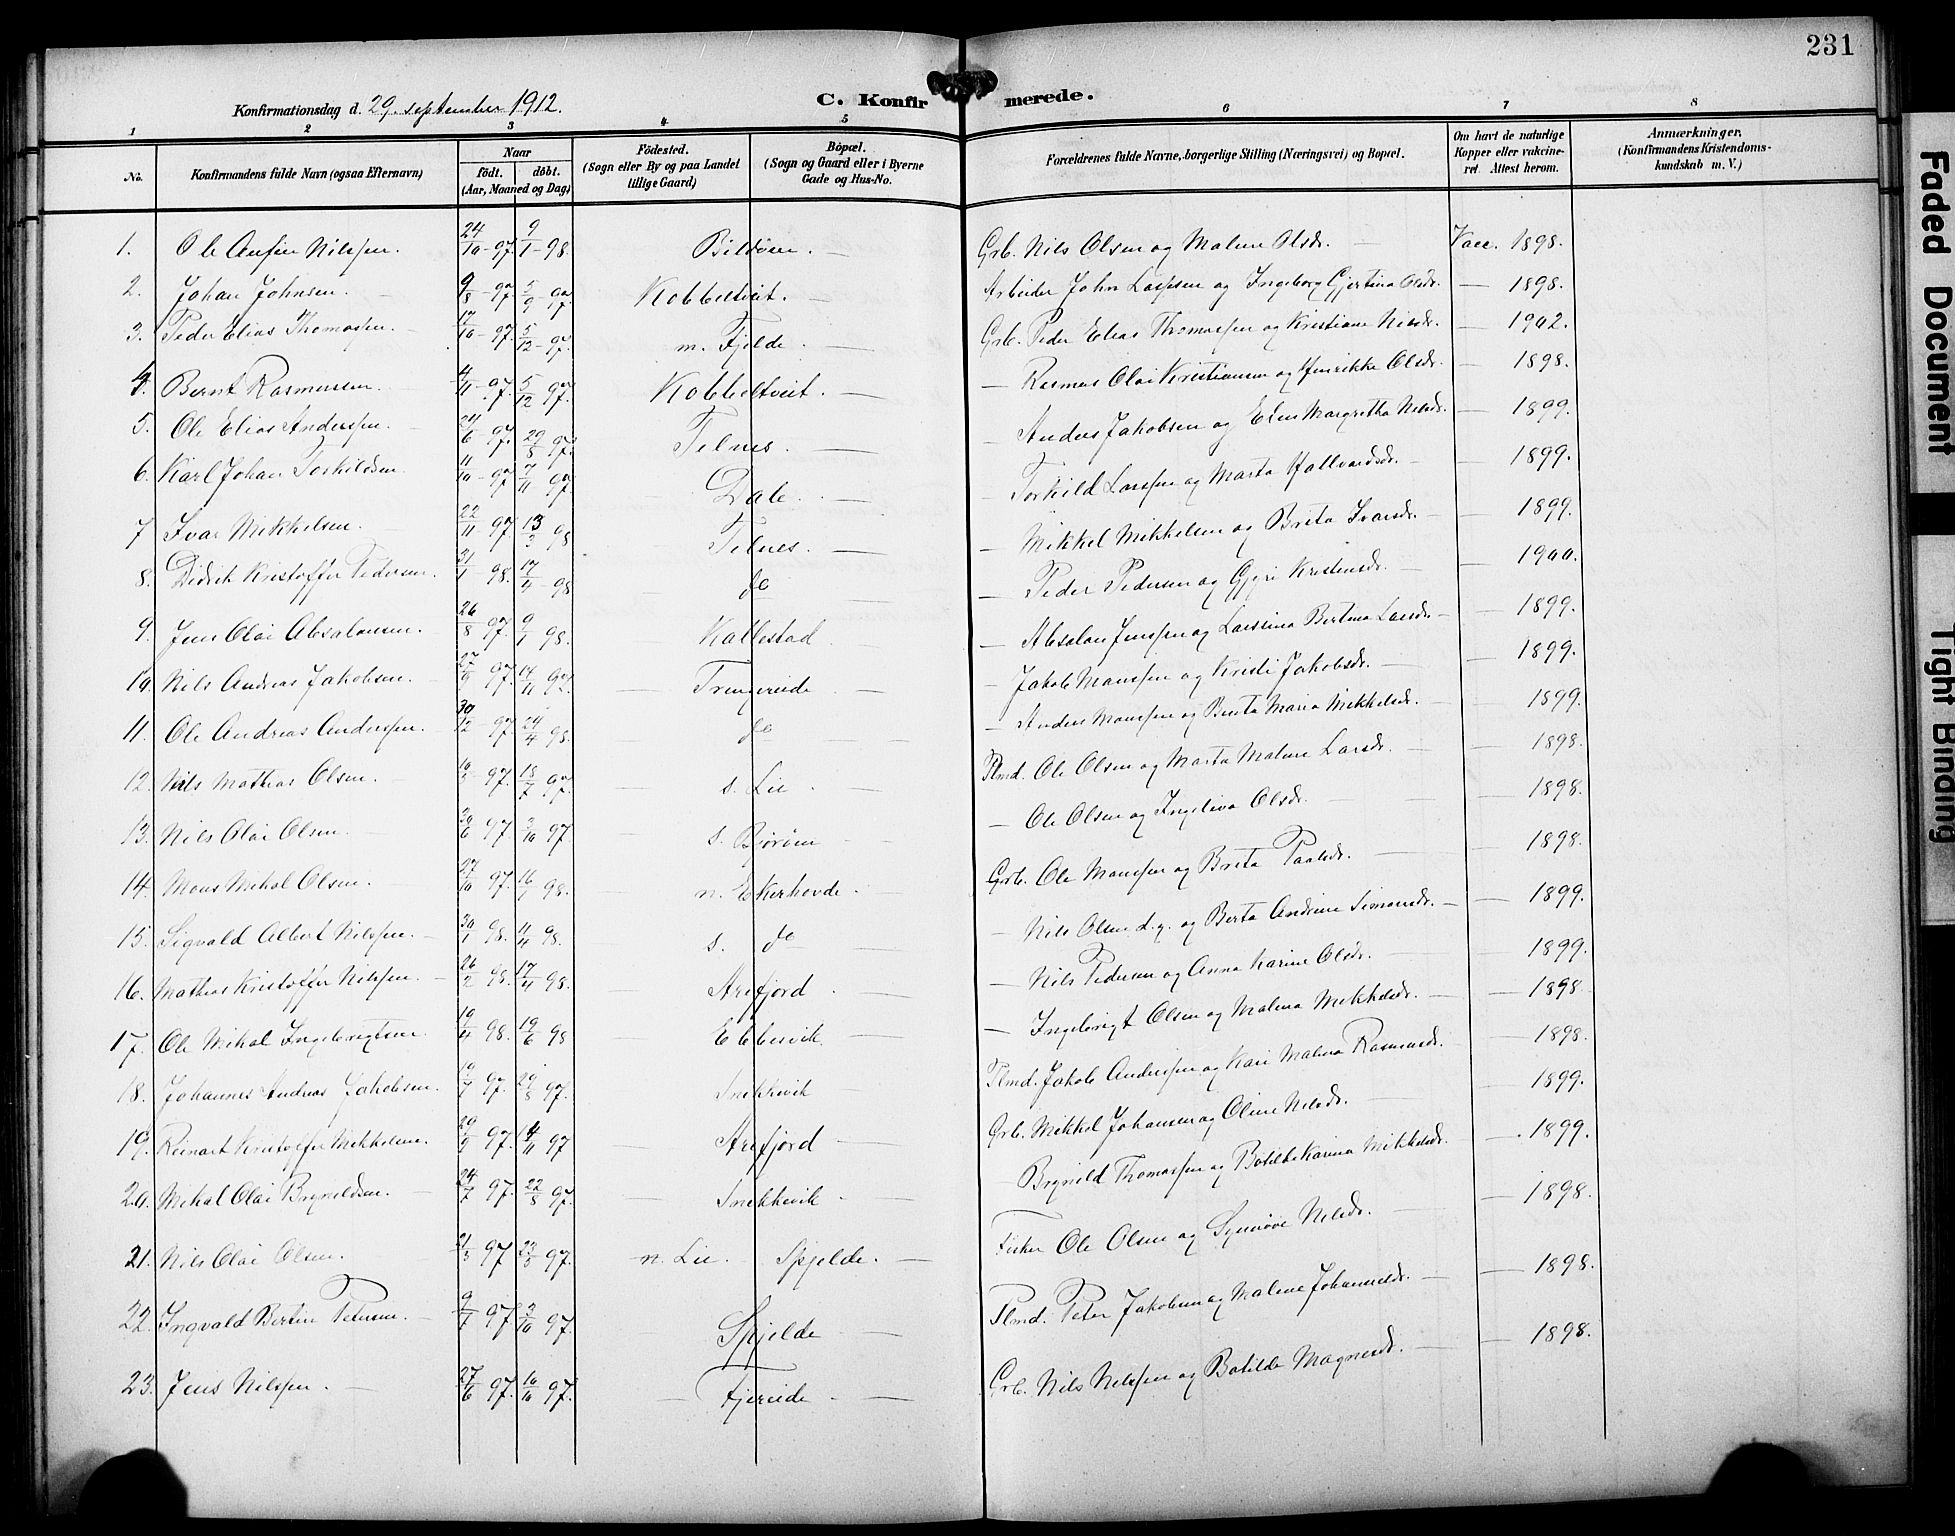 231
Konfirmationsdag d. 29. september 1912. C. Konfirmerede.
1 2 3 4 5 6 7 8
No. Konfirmandens fulde Navn (ogsaa Efternavn) Naar födt. döbt. (Aar, Maaned og Dag) Födested. (Sogn eller By og paa Landet tillige Gaard) Bopæl. (Sogn og Gaard eller i Byerne Gade og Hus-No. Forældrenes fulde Navne, borgerlige Stilling (Næringsvei) og Bopæl. Om havt de naturlige Kopper eller vakcineret. Attest herom. Anmærkninger, (Konfirmandens Kristendomskundskab m. V.)
1. Ole Anfin Nilssen. 24/10-97. 9/1-98. Bildöen. — Grb. Nils Olsen og Malene Olsdr. — Vacc. 1898.
2. Johan Johnsen. 9/8-97. 5/9 97. Kobbeltveit. — Arbeider John Larssen og Ingeborg Gjertina Olsdr. — 1898.
3. Peder Elias Thomassen. 17/10-97. 5/12-97. m. Fjelde. — Grb. Peder Elias Thomassen og Kristiane Nilsdr. — 1902.
4. Bernt Rasmussen. 4/11-97. 5/12 97. Kobbeltveit. — — Rasmus Olai Kristiansen og Henrikke Olsdr. — 1898.
5. Ole Elias Anderssen. 97. 29/8 97. Telnes. — — Anders Jakobsen og Elen Margretha Nilsdr. — 1899.
6. Karl Johan Torkildsen. 11/10-97. 7/11 97. Dale. — — Torkild Larssen og Marta Hallvardsdr. — 1899.
7 Ivar Mikkelsen. 22/11-97. 13/3 98 Telnes. — — Mikkel Mikkelsen og Brita Ivarsdr. — 1899.
8. Didrik Kristoffer Pedersen. 31/1 98. 17/4 98 do — — Peder Pedersen og Gjyri Kristensdr. — 1900.
9. Jens Olai Absalonsen. 26/8 97. 9/1 98. Kallestad — — Absalon Jenssen og Larsina Bertina Larsdr. — 1899.
10. Nils Andreas Jakobsen. 27/9 97. 14/11 97. Trengereide — — Jakob Monssen og Kristi Jakobsdr. — 1899.
11. Ole Andreas Anderssen. 30/12-97. 24/4 98. do — — Anders Monssen og Berita Maria Mikkelsdr. — 1899.
12. Nils Mathias Olsen. 97. 18/7 97. s. Lie — Plmd. Ole Olsen og Marta Malene Larsdr. — 1898.
13. Nils Olai Olsen. 30/6 97. 3/10 97. s. Björöen — — Ole Olsen og Ingeliva Olsdr. — 1898.
14. Mons Mikal Olsen. 27/10 97. 16/1 98. n. Ekerhovde. — Grb. Ole Monssen og Brita Paalsdr. — 1898.
15. Sigvald Albert Nilssen. 30/1 98. 11/4 98. s. do — — Nils Olsen d. y. og Berta Andrine Simonsdr. — 1899.
16. Mathias Kristoffer Nilssen. 26/2 98. 17/4 98. Arefjord. — — Nils Pedersen og Anna Karine Olsdr. — 1899.
17. Ole Mikal Ingebrigtsen. 10/4 98. 19/6 98 Ebbesvik. — — Ingebrigt Olsen og Malena Mikkelsdr. — 1898.
18. Johannes Andreas Jakobsen. 97. 29/8 97. Snekkevik Plmd. Jakob Anderssen og Kari Malena Rasmusdr. — 1898.
19. Reinart Kristoffer Mikkelsen. 29/9 97. 14/11 97 Arefjord — Grb. Mikkel Johansen og Oline Nilsdr. — 1899.
20. Mikal Olai Brynildsen. 24/7 97. 22/8 97. Snekkevik — Brynild Thomassen og Botilde Karina Mikkelsdr. — 1899.
21. Nils Olai Olsen. 21/3 97 23/5 97. n. Lie. Spjelde. — Fisker Ole Olsen og Synnöve Nilsdr. — 1898.
22. Ingvald Bertin Petersen. 9/7 97. 3/10 97. Spjelde — Plmd. Peter Jakobsen og Malene Johannesdr. — 1898.
23. Jens Nilssen. — 27/6 97. 10/10 97. — Fjereide. — Grb. Nils Nilssen og Botilde Magnesdr. — 1898.
Faded Document
Tight Binding